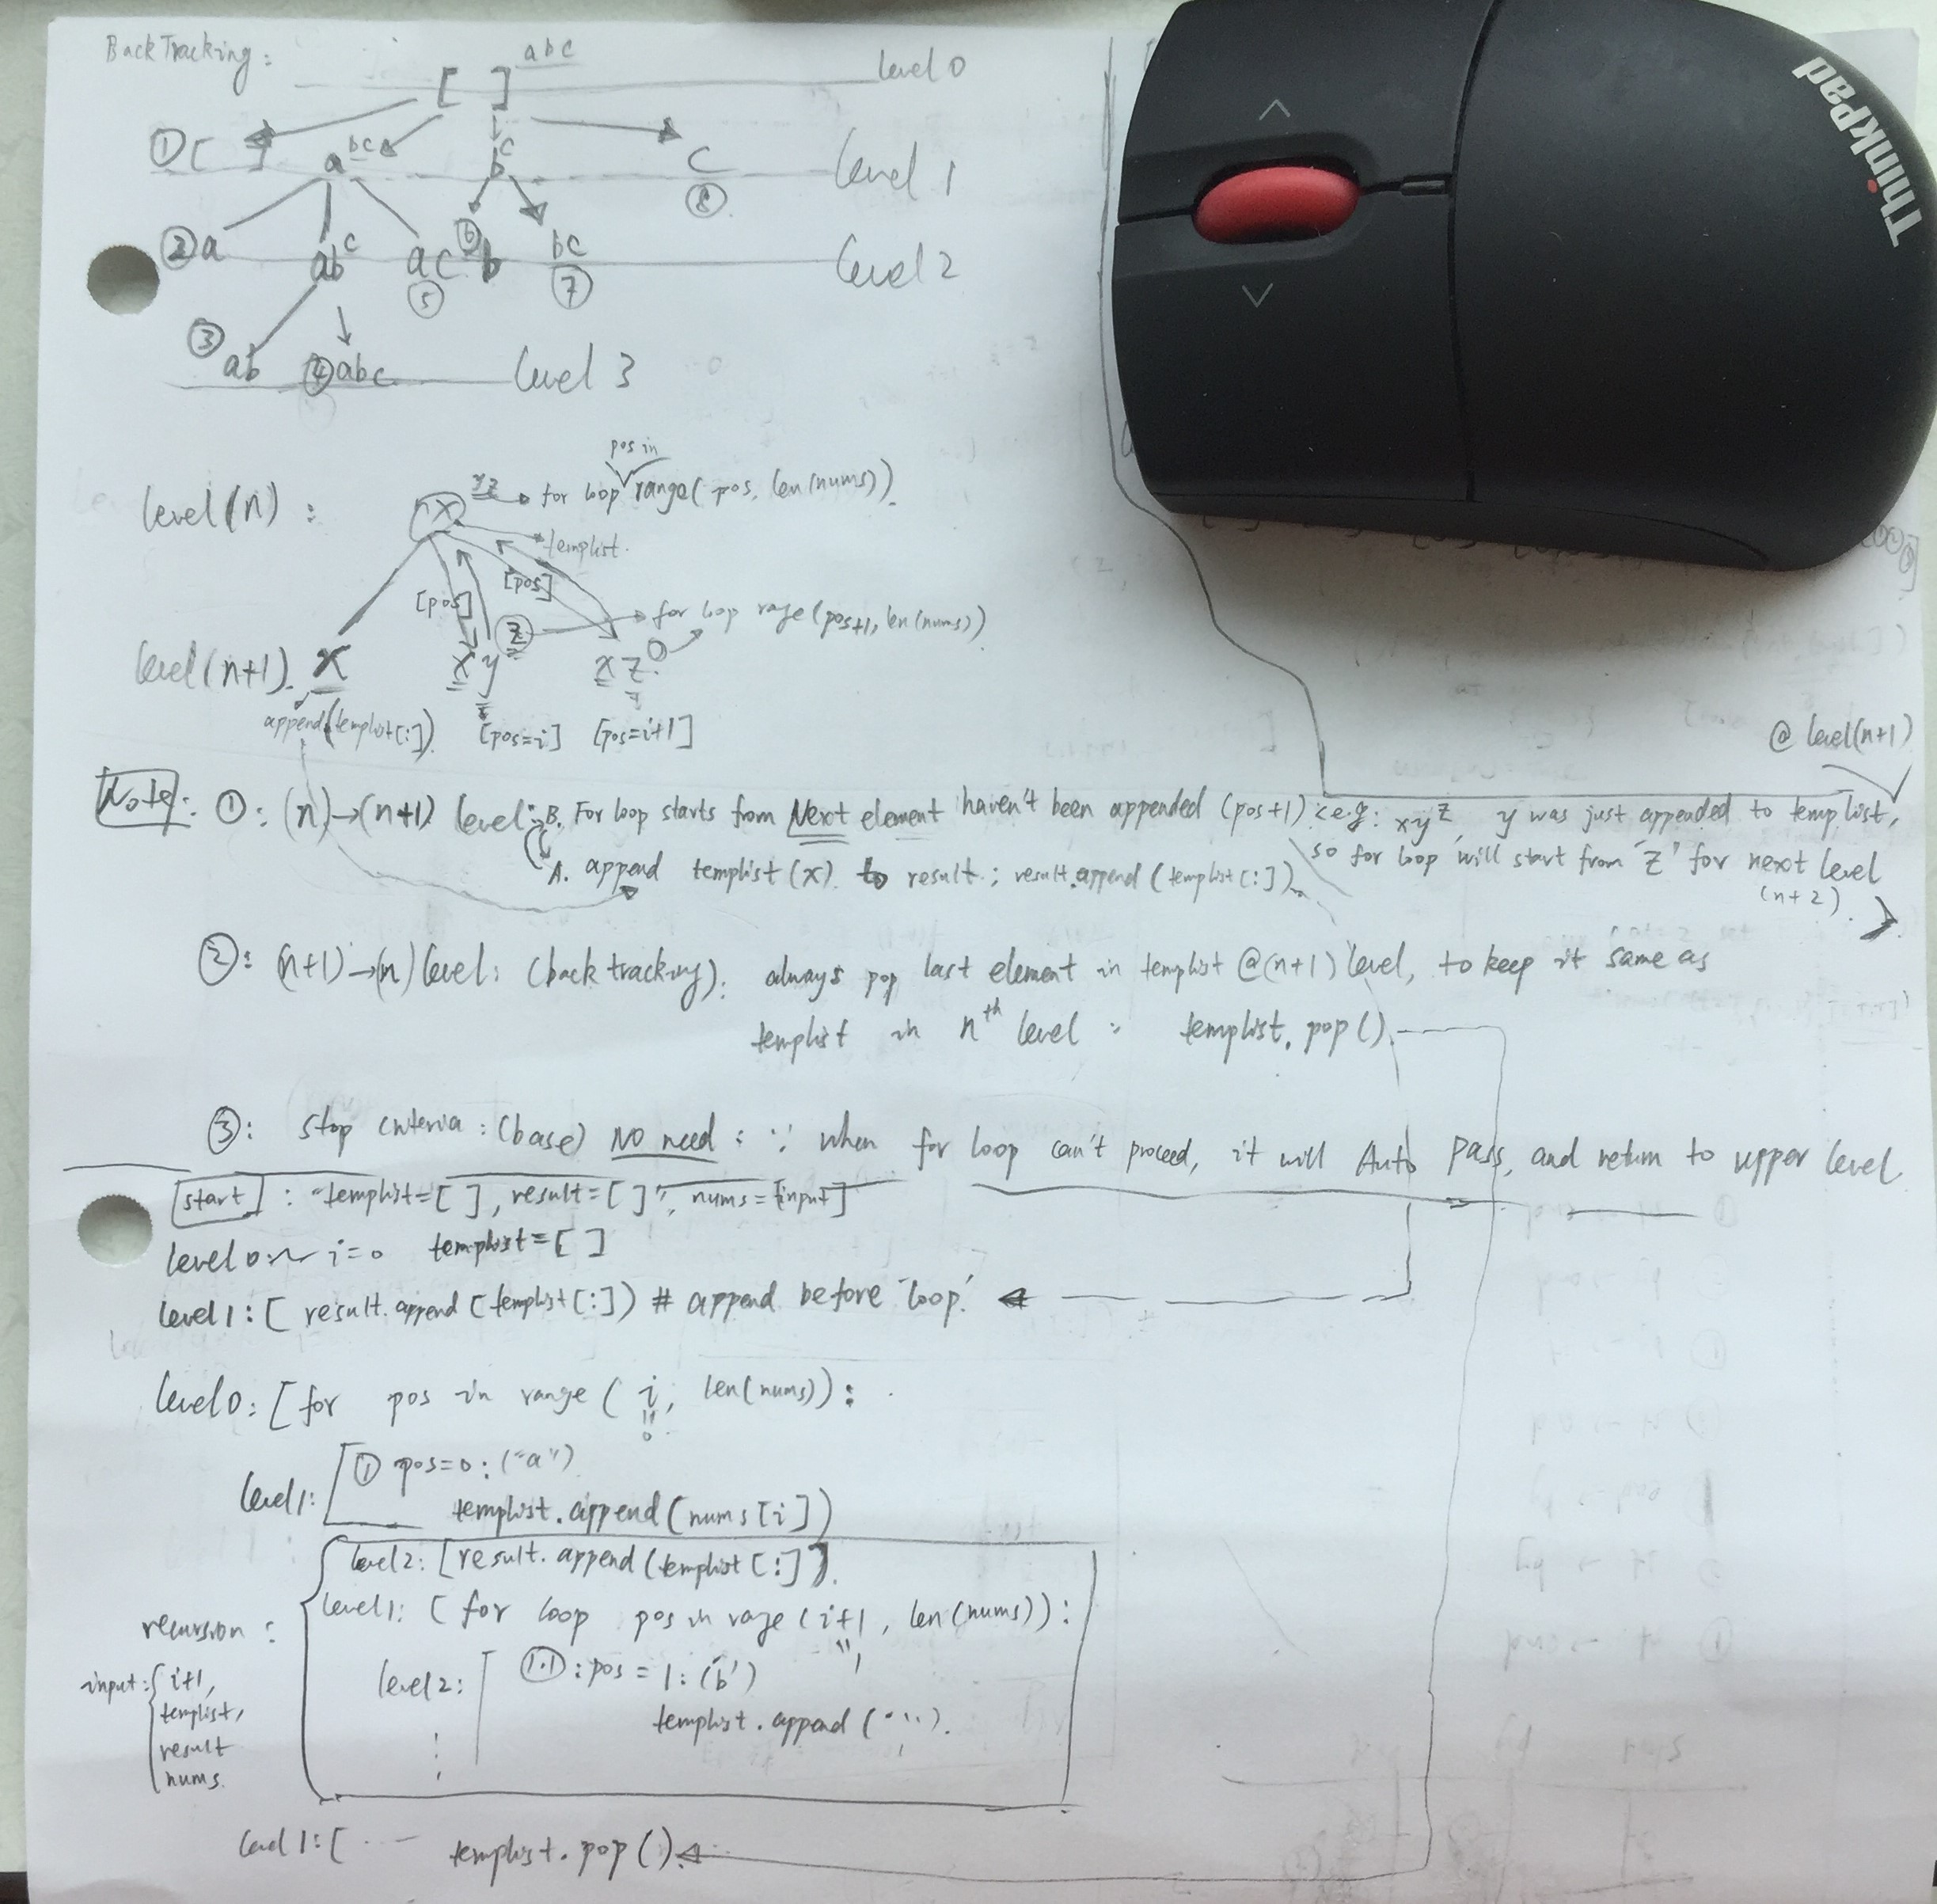 BackTracking:
[ ] abc
level 0
① [ ]
a bc
b c
c
⑧
level 1
② a
ab c
ac
⑤
⑥ b
bc
⑦
level 2
③ ab
④ abc
level 3
ThinkPad
pos in
level(n) :
x yz → for loop range( pos, len(nums)).
templist.
[pos]
[pos]
z
for loop rage(pos+1, len(nums))
level(n+1). x
xy
xz
append(templist[:]).
[pos=i]
[pos=i+1]
@ level(n+1)
Note: ①: (n)→(n+1) level: B. For loop starts from Next element haven't been appended (pos+1) <e.g: xy z, y was just appended to templist,
so for loop will start from 'z' for next level
(n+2). >
A. append templist(x) to result.; result.append(templist[:])
②: (n+1)→(n) level: (back tracking): always pop last element in templist @(n+1) level, to keep it same as
templist in nth level : templist.pop().
③: stop criteria: (base) NO need: ∵ when for loop can't proceed, it will Auto Pass, and return to upper level
start : "templist=[ ], result=[ ]", nums=[input]
level 0: i=0 templist=[ ]
level1: [ result.append(templist[:]) # append before 'loop'
level0: [for pos in range( i, len(nums)):
"
0
level1: ① pos=0: ("a")
templist.append(nums[i])
level2: [result.append(templist[:]).
level1: [ for loop pos in rage(i+1, len(nums)):
recursion :
level2: 1.1 : pos = 1: ('b')
templist.append(
input: { i+1,
templist,
result
nums.
level1: [ ... templist.pop().